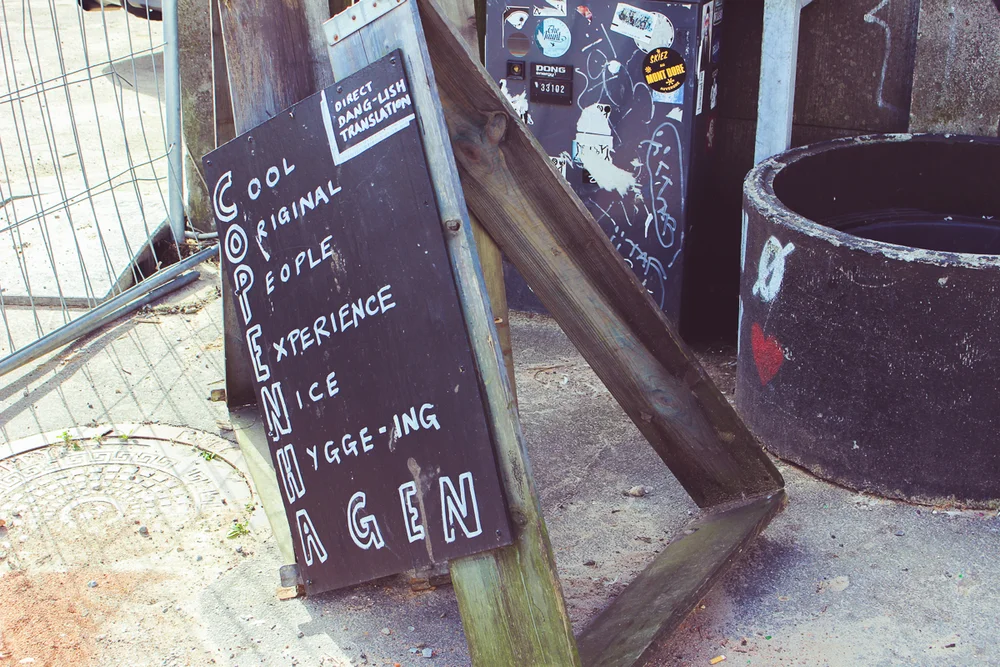 DIRECT
DANG-LISH
TRANSLATION
COOL
ORIGINAL
PEOPLE
EXPERIENCE
NICE
HYGGE-ING
AGEN
DONG
energy
33102
SKIEZ
MONT DORE